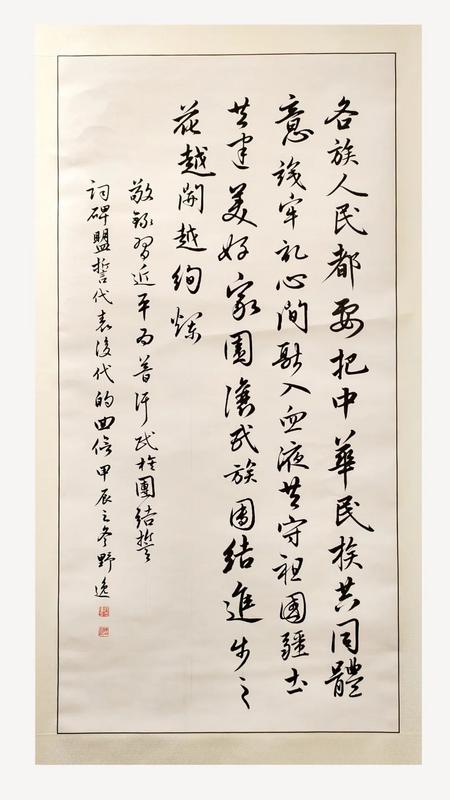 各族人民都要把中華民族共同體
意識牢記心間融入血液共守祖國疆土
共建美好家園讓民族團結進步之
花越開越絢爛
敬錄習近平為普洱民族團結誓
詞碑盟誓代表後代的回信甲辰之冬野逸